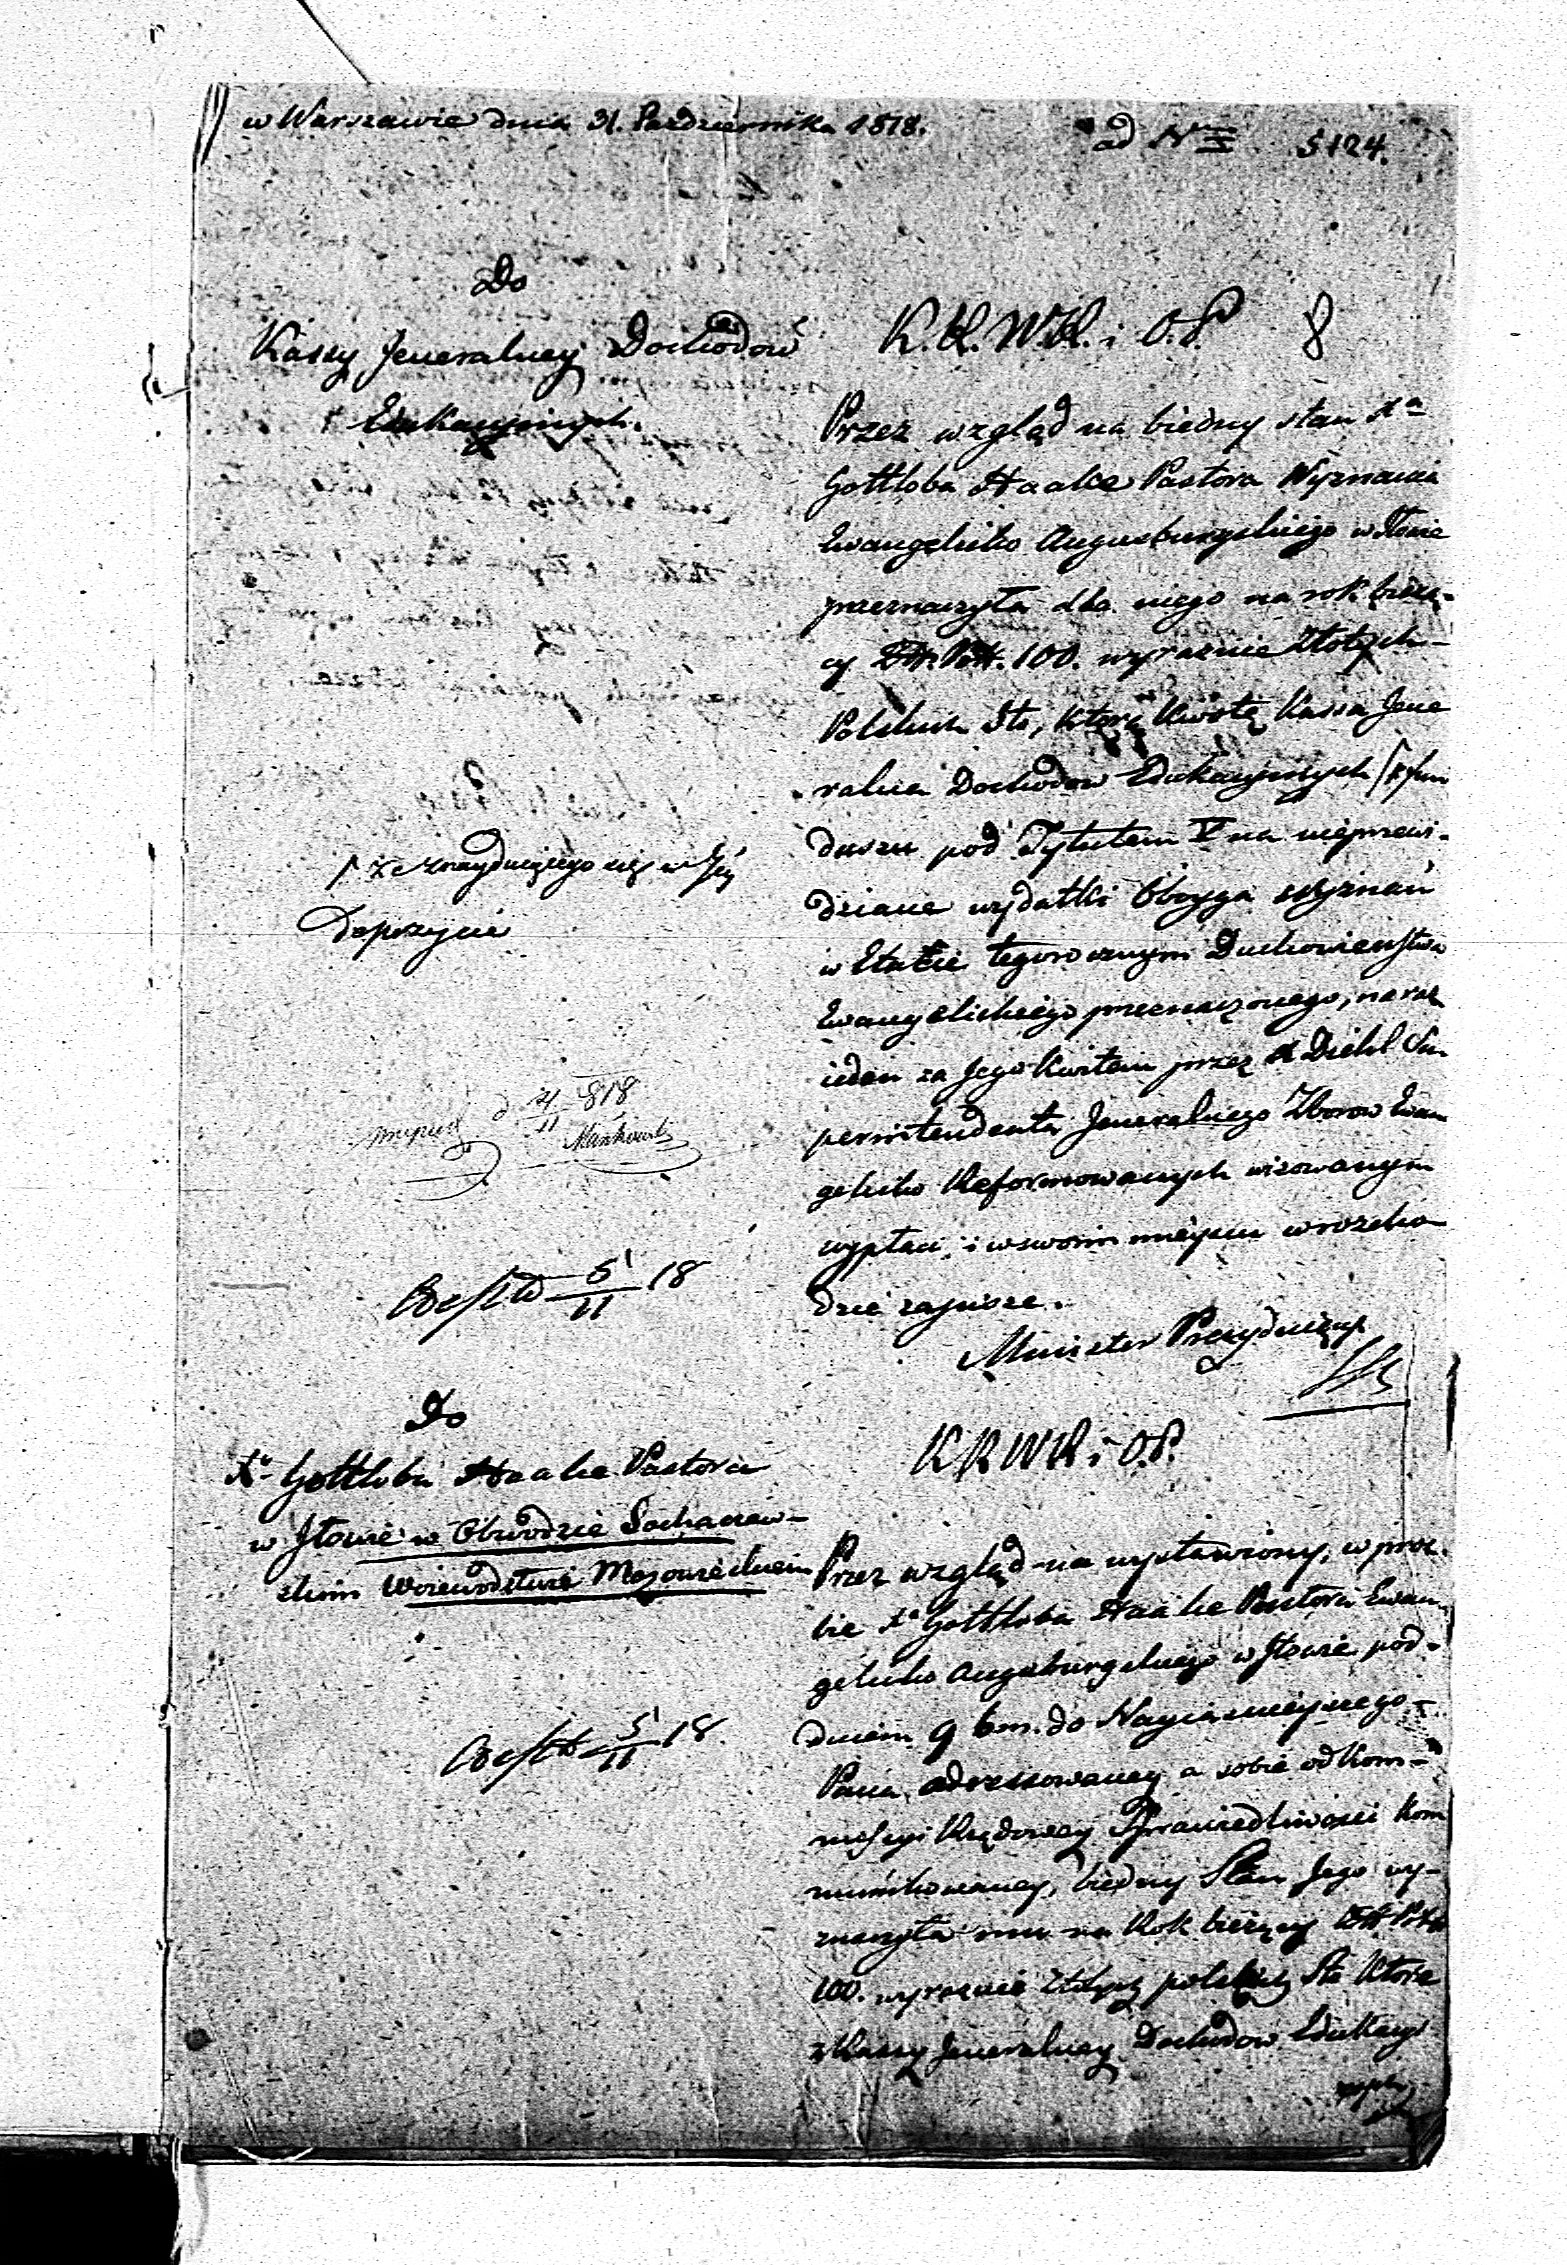 w Warszawie dnia 31. Października 1818.
ad N 5124.
Do
Kassy Jeneralney Dochodów
Edukacyinych.
K.R.W.R. i O.P. 8
Przez wzgląd na biedny stan Xa
Gottloba Haake Pastora Wyznania
Ewangelicko Augusburgskiego w Iłowie
przeznaczyła dla niego na rok bieżą-
cy Złt. Pol. 100. wyraznie Złotych
Polskich Sto, którą kwotę Kassa Jene
ralna Dochodow Edukacyinych / z fun
duszu pod Tytułem V na nieprzewi-
dziane wydatki Oboyga Wyznań
w Etacie tegorocznym Duchowieństwa
Ewangelickiego przeznaczonego, na raz
ieden za Jego kwitem przez X Diehl Su-
perintendenta Jeneralnego Zborow Ewan
gelicko Reformowanych wizowanym
wypłaci i w swoim mieyscu w rozcho
dzie zapisze.
Minister Prezyduiący
/ ze znayduiącego się w Jey
Depozycie
d 4/11 818
Mańkowski
5/11 18
Do
Xa Gottloba Haake Pastora
w Iłowie w Obwodzie Sochaczew-
skim Woiewodztwie Mazowieckiem
5/11 18.
K R W R i O.P.
Przez wzgląd na wystawiony, w proź-
bie Xa Gottloba Haake Pastora Ewan
gelicko Augsburgskiego w Iłowie pod
dniem 9 bm. do Nayiaśnieyszego
Pana adressowaney a sobie od Kom-
missyi Rządowey Sprawiedliwości kom
munikowaney, biedny Stan Jego wy-
znaczyła mu na Rok bieżący Złt Pol
100. wyraznie Złotych polskich Sto które
z Kassy Jeneralney Dochodow Edukacyi